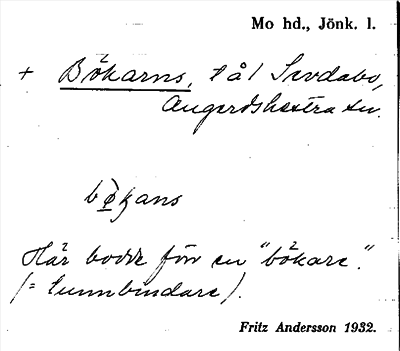 Mo hd., Jönk. l.
+ Bökarns, t å l Svdabo,
Angerdshestra sn.
bökans
Här bodde förr en "bökare".
(= tunnbindare).
Fritz Andersson 1932.